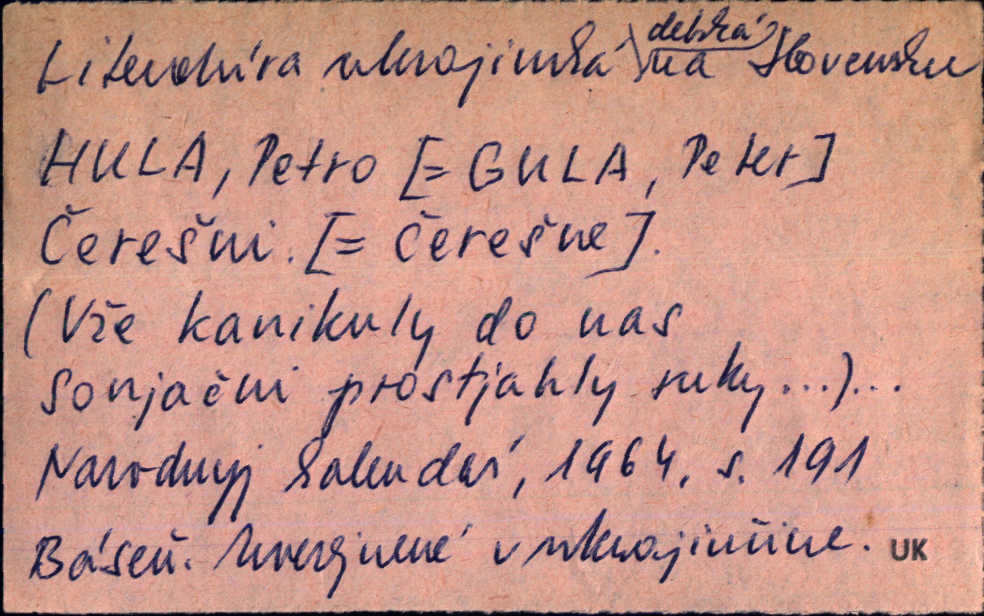 Literatúra ukrajinská \detská/ na Slovensku
HULA, Petro [= GULA, Peter]
Čerešni. [= Čerešne].
(Vže kanikuly do nas
sonjačni prostjahly ruky...)...
Narodnyj kalendar, 1964, s. 191
Báseň. Uverejnené v ukrajinčine. UK